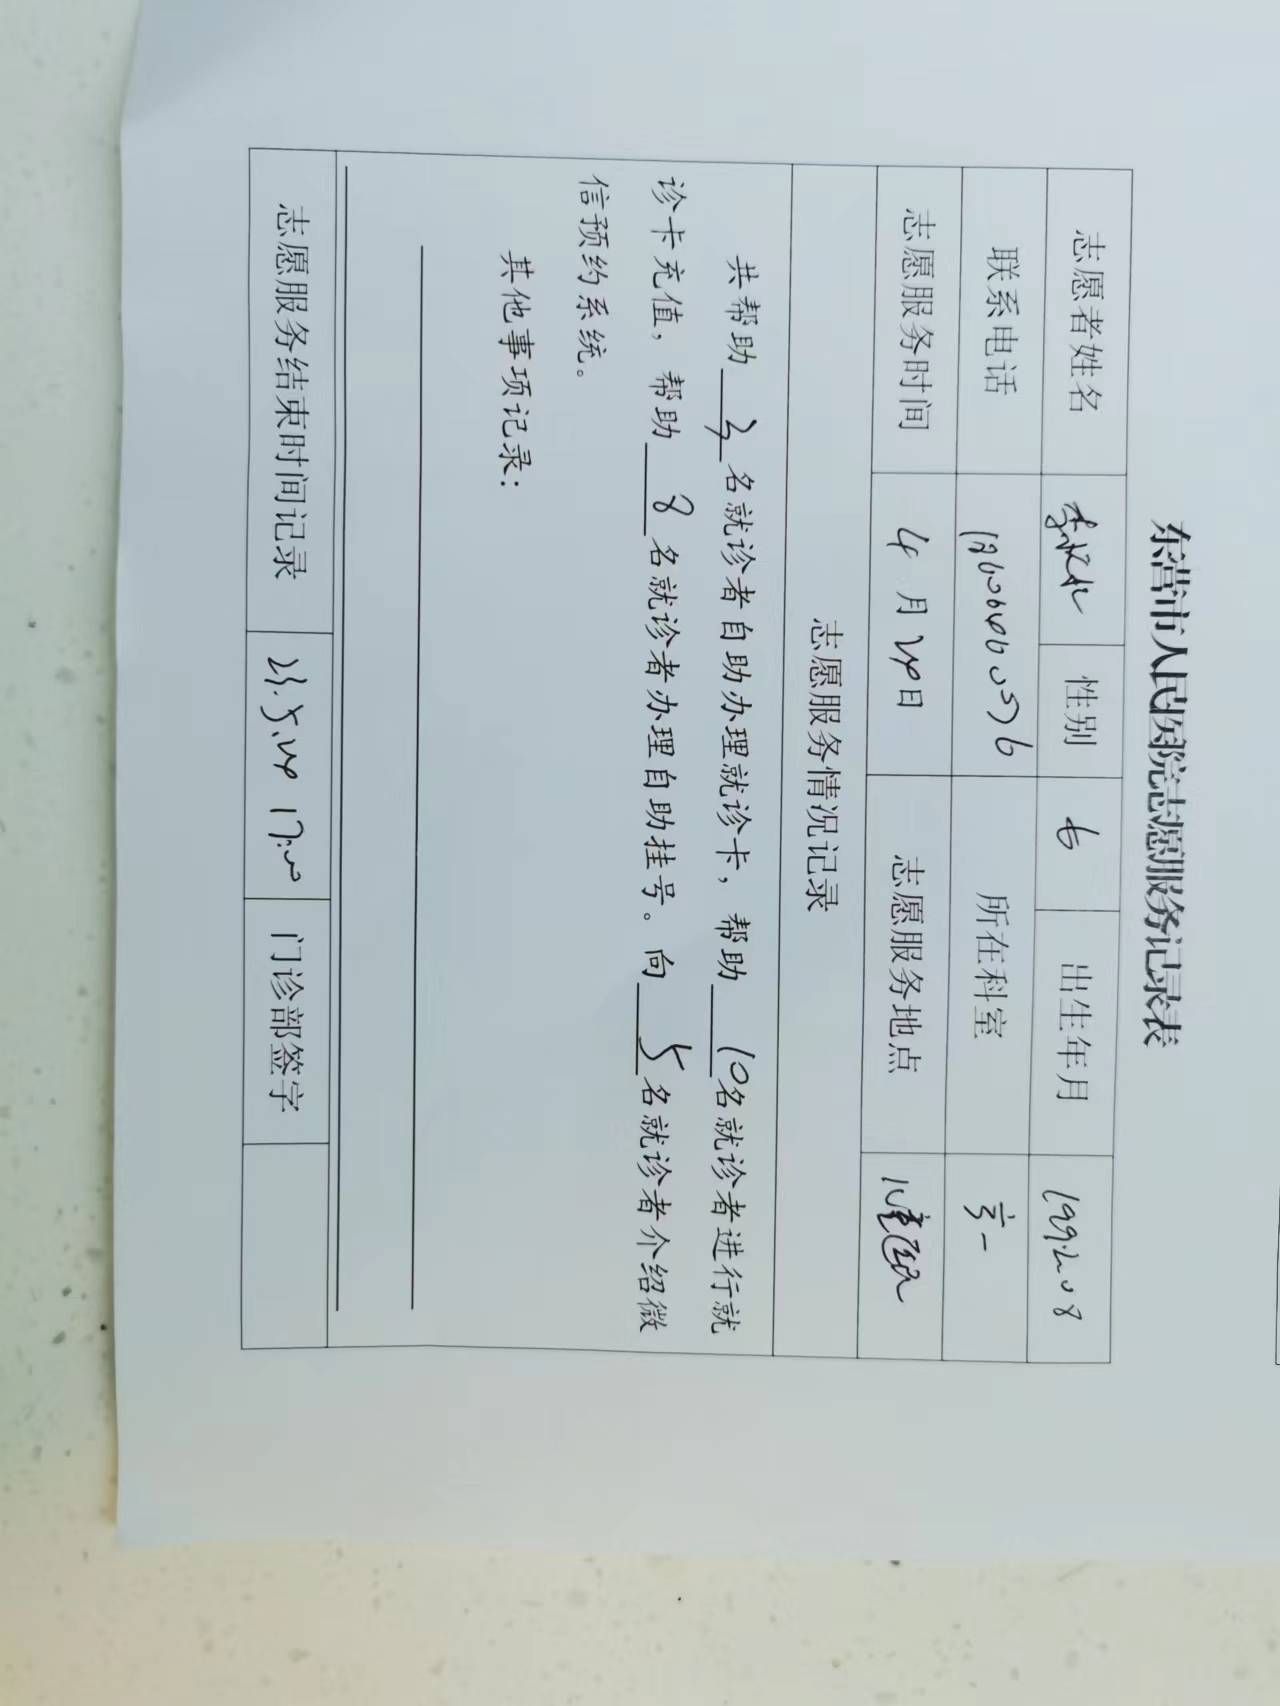 东营市人民医院志愿服务记录表
志愿者姓名 性别 女 出生年月 1992.08
联系电话 所在科室
志愿服务时间 4月24日 志愿服务地点
志愿服务情况记录
共帮助 名就诊者自助办理就诊卡，帮助 10 名就诊者进行就
诊卡充值，帮助 8 名就诊者办理自助挂号。向 5 名就诊者介绍微
信预约系统。
其他事项记录：
志愿服务结束时间记录 17:00 门诊部签字